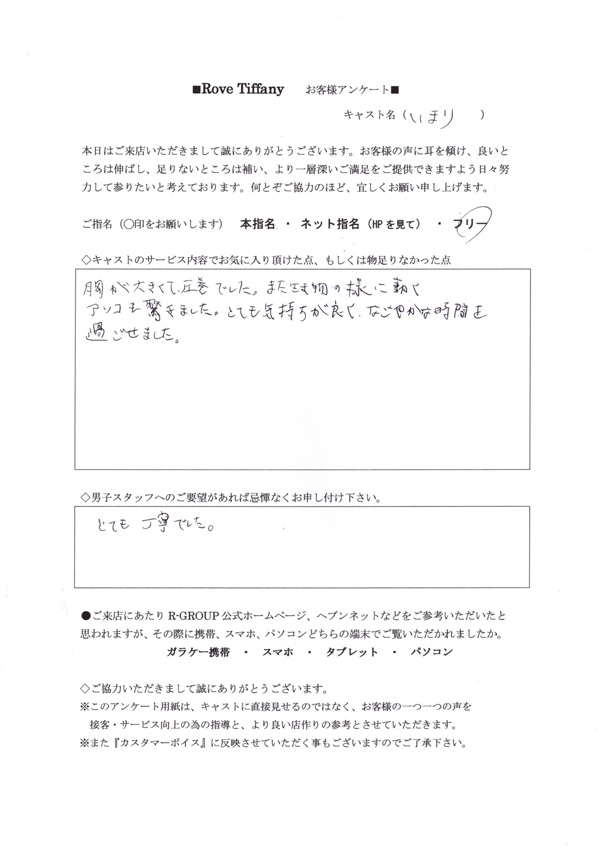 ■Rove Tiffany お客様アンケート■
キャスト名（いまり ）
本日はご来店いただきまして誠にありがとうございます。お客様の声に耳を傾け、良いと
ころは伸ばし、足りないところは補い、より一層深いご満足をご提供できますよう日々努
力して参りたいと考えております。何とぞご協力のほど、宜しくお願い申し上げます。
ご指名（〇印をお願いします） 本指名 ・ ネット指名（HPを見て） ・ フリー
◇キャストのサービス内容でお気に入り頂けた点、もしくは物足りなかった点
胸が大きくて圧巻でした。また生き物の様に動く
アソコも驚きました。とても気持ちが良く、なごやかな時間を
過ごせました。
◇男子スタッフへのご要望があれば忌憚なくお申し付け下さい。
とても丁寧でした。
●ご来店にあたり R-GROUP 公式ホームページ、ヘブンネットなどをご参考いただいたと
思われますが、その際に携帯、スマホ、パソコンどちらの端末でご覧いただかれましたか。
ガラケー携帯 ・ スマホ ・ タブレット ・ パソコン
◇ご協力いただきまして誠にありがとうございます。
※このアンケート用紙は、キャストに直接見せるのではなく、お客様の一つ一つの声を
接客・サービス向上の為の指導と、より良い店作りの参考とさせていただきます。
※また『カスタマーボイス』に反映させていただく事もございますのでご了承下さい。